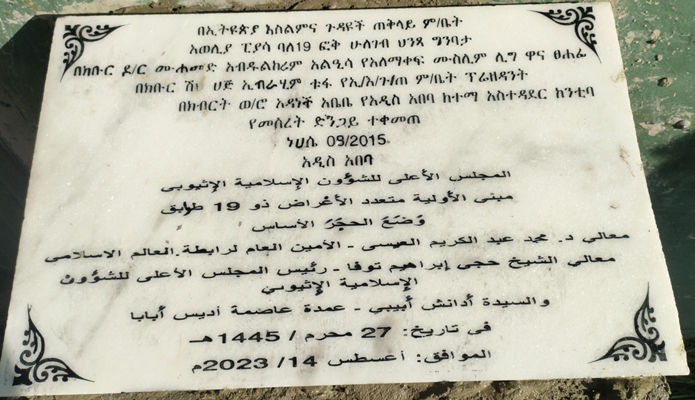 በኢትዮጵያ እስልምና ጉዳዩች ጠቅላይ ም/ቤት
አወሊያ ፒያሳ ባለ19 ፎቅ ሁለገብ ህንጻ ግንባታ
በክቡር ዶ/ር ሙሐመድ አብዱልከሪም አልዒሳ የአለማቀፍ ሙስሊም ሊግ ዋና ፀሐፊ
በክቡር ሼህ ሀጅ ኢብራሂም ቱፋ የኢ/እ/ጉ/ጠ ም/ቤት ፕሬዘዳንት
በክብርት ወ/ሮ አዳነች አቤቤ የአዲስ አበባ ከተማ አስተዳደር ከንቲባ
የመሰረት ድንጋይ ተቀመጠ
ነሀሴ 09/2015
አዲስ አበባ
المجلس الأعلى للشؤون الإسلامية الإثيوبي
مبنى الأولية متعدد الأغراض ذو 19 طابق
وَضَعَ الحجَرَ الأساس
معالي د. محمد عبد الكريم العيسى - الأمين العام لرابطة العالم الاسلامي
معالي الشيخ حجي إبراهيم توفا - رئيس المجلس الأعلى للشؤون
الإسلامية الإثيوبي
والسيدة أدانش أبيبي - عمدة عاصمة أديس أبابا
في تاريخ: 27 محرم / 1445هـ
الموافق: أغسطس 14/ 2023م